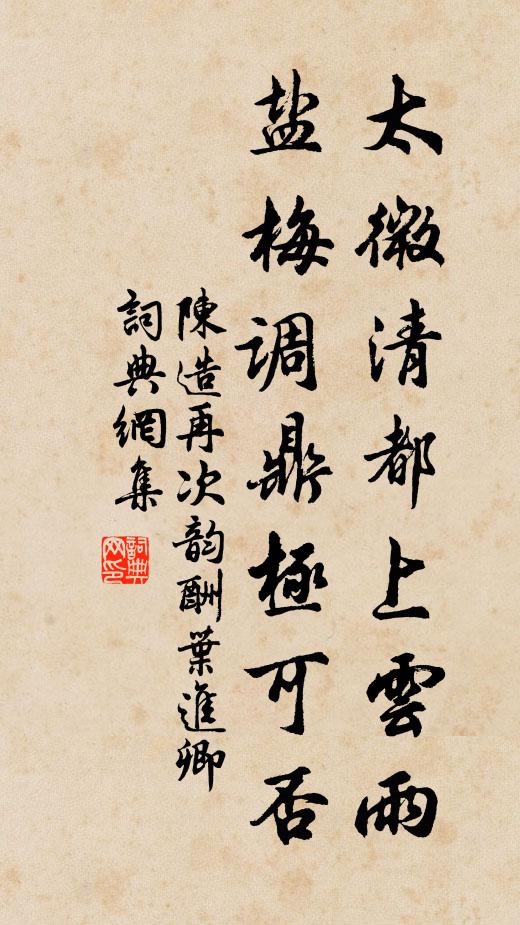 太微清都上雲雨
盐梅调鼎極可否
陳造再次韵酬葉進卿
詞典網集
詞典网印